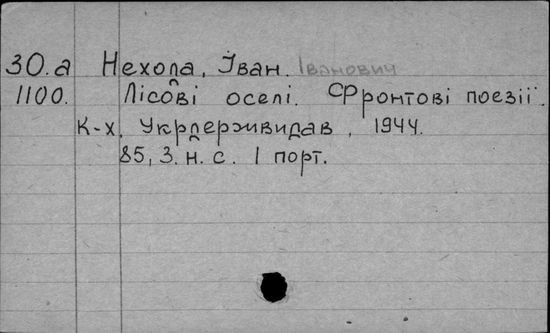 30.а Нехода, Іван. Іванович
1100. Лісові оселі. Фронтові поезії.
К-х. Укрдержвидав, 1944.
85, 3. н. с. 1 порт.